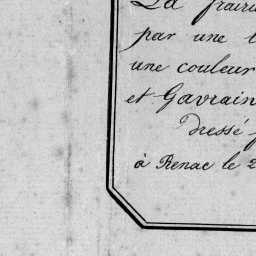 La frairi
par une
une couleur
et Gavrain
Dressé
à Renac le 2